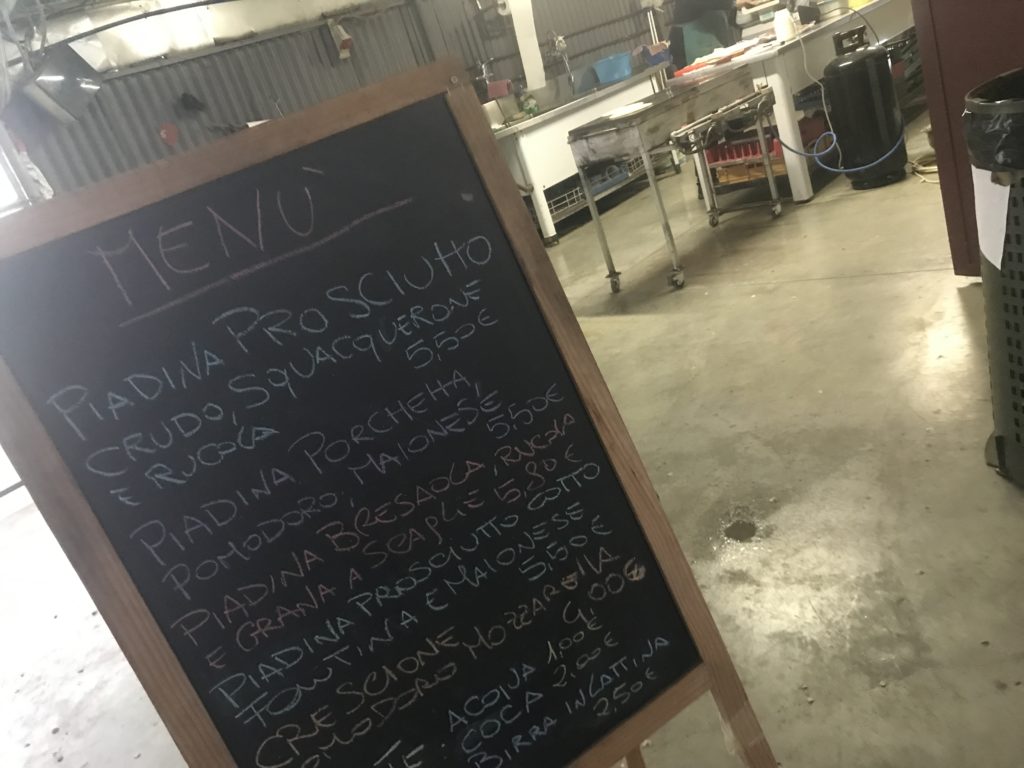 MENÙ
PIADINA PROSCIUTTO
CRUDO, SQUACQUERONE
E RUCOLA 5,50€
PIADINA PORCHETTA,
POMODORO, MAIONESE
5,50€
PIADINA BRESAOLA, RUCOLA
E GRANA A SCAPLIE 5,80€
PIADINA PROSCIUTTO COTTO
FONTINA E MAIONESE
5,50€
CRESCIONE MOZZARELLA
POMODORO 4,00€
ACQUA 1,00€
COCA 2,00€
BIRRA IN LATTINA
2,50€